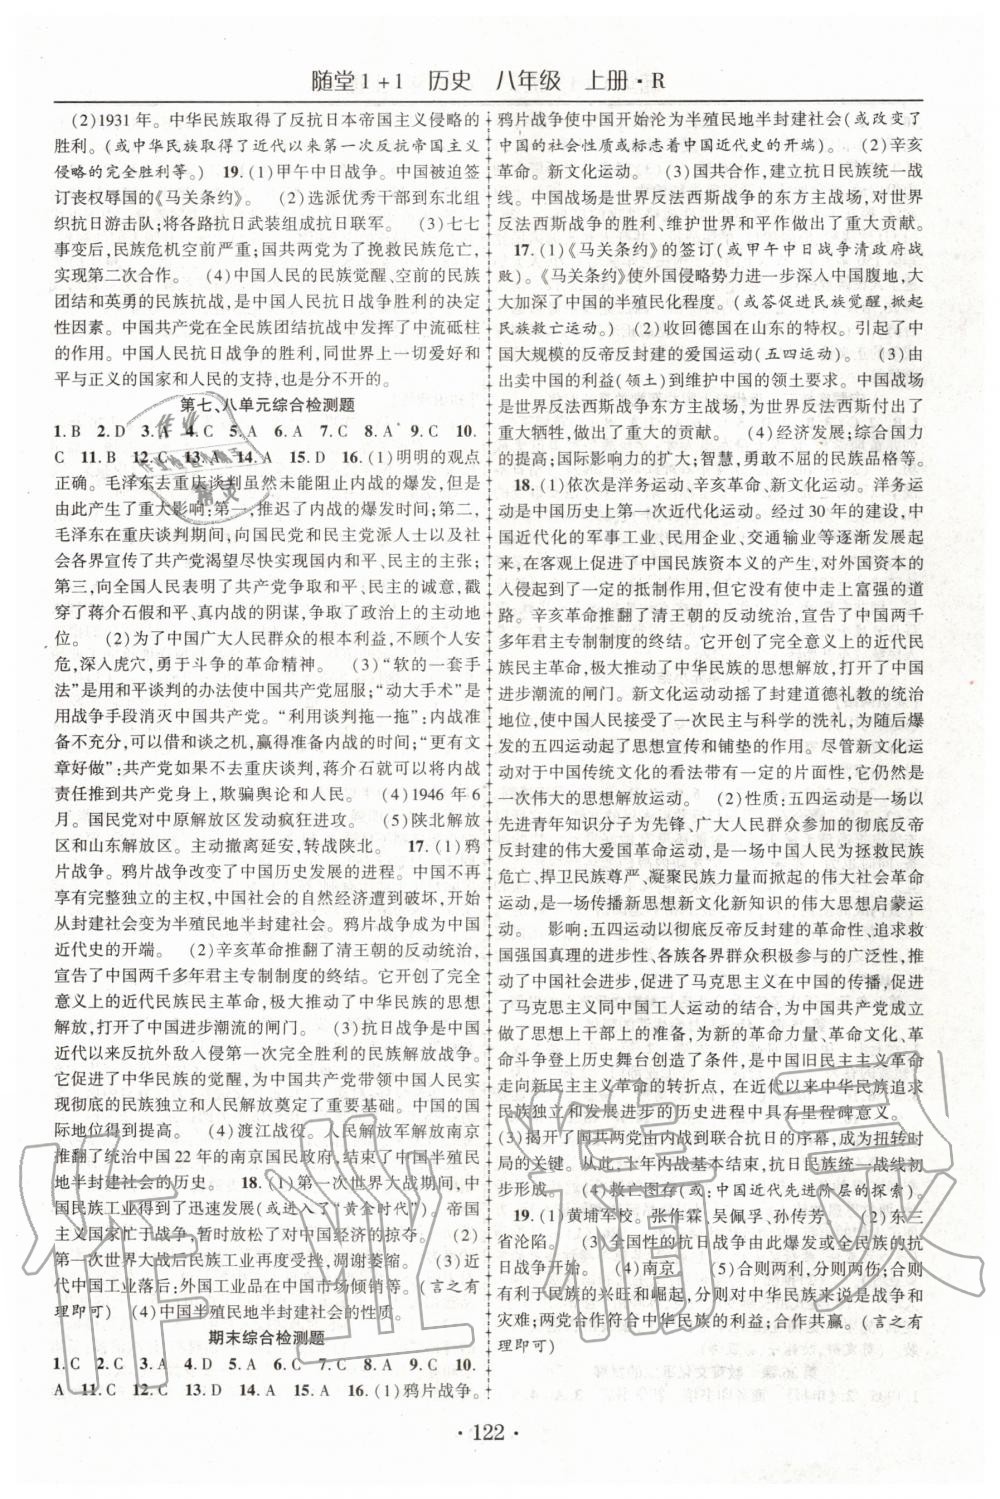 随堂1+1 历史 八年级 上册·R
(2)1931年。中华民族取得了反抗日本帝国主义侵略的
胜利。(或中华民族取得了近代以来第一次反抗帝国主义
侵略的完全胜利等。) 19.(1)甲午中日战争。中国被迫签
订丧权辱国的《马关条约》。 (2)选派优秀干部到东北组
织抗日游击队;将各路抗日武装组成抗日联军。 (3)七七
事变后,民族危机空前严重;国共两党为了挽救民族危亡,
实现第二次合作。 (4)中国人民的民族觉醒、空前的民族
团结和英勇的民族抗战,是中国人民抗日战争胜利的决定
性因素。中国共产党在全民族团结抗战中发挥了中流砥柱
的作用。中国人民抗日战争的胜利,同世界上一切爱好和
平与正义的国家和人民的支持,也是分不开的。
第七、八单元综合检测题
1.B 2.D 3.A 4.C 5.A 6.A 7.C 8.A 9.C 10.
C 11.B 12.C 13.A 14.A 15.D 16.(1)明明的观点
正确。毛泽东去重庆谈判虽然未能阻止内战的爆发,但是
由此产生了重大影响;第一,推迟了内战的爆发时间;第二,
毛泽东在重庆谈判期间,向国统区民众和民主党派人士以及
社会各界宣传了共产党渴望尽快实现国内和平、民主的主张;
第三,向全国人民表明了共产党争取和平、民主的诚意,戳
穿了蒋介石假和平、真内战的阴谋,争取了政治上的主动地
位。 (2)为了中国广大人民群众的根本利益,不顾个人安
危,深入虎穴,勇于斗争的革命精神。 (3)“软的一套手
法”是用和平谈判的办法使中国共产党屈服;“动大手术”是
用战争手段消灭中国共产党。“利用谈判拖一拖”:内战准
备不充分,可以借和谈之机,赢得准备内战的时间;“更有文
章好做”:共产党如果不去重庆谈判,蒋介石就可以将内战
责任推到共产党身上,欺骗舆论和人民。 (4)1946年6
月。国民党对中原解放区发动疯狂进攻。 (5)陕北解放
区和山东解放区。主动撤离延安,转战陕北。 17.(1)鸦
片战争。鸦片战争改变了中国历史发展的进程。中国不再
享有完整独立的主权,中国社会的自然经济遭到破坏,开始
从封建社会变为半殖民地半封建社会。鸦片战争成为中国
近代史的开端。 (2)辛亥革命推翻了清王朝的反动统治,
宣告了中国两千多年君主专制制度的终结。它开创了完全
意义上的近代民族民主革命,极大推动了中华民族的思想
解放,打开了中国进步潮流的闸门。 (3)抗日战争是中国
近代以来反抗外敌入侵第一次完全胜利的民族解放战争。
它促进了中华民族的觉醒,为中国共产党带领中国人民实
现彻底的民族独立和人民解放奠定了重要基础。中国的国
际地位得到提高。 (4)渡江战役。人民解放军解放南京
推翻了统治中国22年的南京国民政府,结束了中国半殖民
地半封建社会的历史。 18.(1)第一次世界大战期间,中
国民族工业得到了迅速发展(或进入了“黄金时代”)。帝国
主义国家忙于战争,暂时放松了对中国经济的掠夺。 (2)
第一次世界大战后民族工业再度受挫,凋谢萎缩。 (3)近
代中国工业落后;外国工业品在中国市场倾销等。(言之有
理即可) (4)中国半殖民地半封建社会的性质。
期末综合检测题
1.C 2.C 3.A 4.D 5.D 6.A 7.A 8.C 9.C 10.
A 11.C 12.C 13.A 14.A 15.A 16.(1)鸦片战争。
鸦片战争使中国开始沦为半殖民地半封建社会(或改变了
中国的社会性质或标志着中国近代史的开端)。 (2)辛亥
革命。新文化运动。 (3)国共合作,建立抗日民族统一战
线。中国战场是世界反法西斯战争的东方主战场,对世界
反法西斯战争的胜利、维护世界和平作做出了重大贡献。
17.(1)《马关条约》的签订(或甲午中日战争清政府战
败)。《马关条约》使外国侵略势力进一步深入中国腹地,大
大加深了中国的半殖民化程度。(或答促进民族觉醒,掀起
民族救亡运动。) (2)收回德国在山东的特权。引起了中
国大规模的反帝反封建的爱国运动(五四运动)。 (3)由
出卖中国的利益(领土)到维护中国的领土要求。中国战场
是世界反法西斯战争东方主战场,为世界反法西斯付出了
重大牺牲,做出了重大的贡献。 (4)经济发展;综合国力
的提高;国际影响力的扩大;智慧,勇敢不屈的民族品格等。
18.(1)依次是洋务运动、辛亥革命、新文化运动。洋务运
动是中国历史上第一次近代化运动。经过30年的建设,中
国近代化的军事工业、民用企业、交通输业等逐渐发展起
来,在客观上促进了中国民族资本主义的产生,对外国资本的
入侵起到了一定的抵制作用,但是没有使中走上富强的道
路。辛亥革命推翻了清王朝的反动统治,宣告了中国两千
多年君主专制制度的终结。它开创了完全意义上的近代民
族民主革命,极大推动了中华民族的思想解放,打开了中国
进步潮流的闸门。新文化运动动摇了封建道德礼教的统治
地位,使中国人民接受了一次民主与科学的洗礼,为随后爆发
的五四运动起了思想宣传和铺垫的作用。尽管新文化运
动对中国传统文化的看法带有一定的片面性,它仍然是
一次伟大的思想解放运动。 (2)性质:五四运动是一场以
先进青年知识分子为先锋、广大人民群众参加的彻底反帝
反封建的伟大爱国革命运动,是一场中国人民为拯救民族
危亡、捍卫民族尊严、凝聚民族力量而掀起的伟大社会革命
运动,是一场传播新思想新文化新知识的伟大思想启蒙运
动。 影响:五四运动以彻底反帝反封建的革命性、追求救
国强国真理的进步性、各族各界群众积极参与的广泛性,推
动了中国社会进步,促进了马克思主义在中国的传播,促进
了马克思主义同中国工人运动的结合,为中国共产党成立
做了思想上干部上的准备,为新的革命力量、革命文化、革
命斗争登上历史舞台创造了条件,是中国旧民主主义革命
走向新民主主义革命的转折点,在近代以来中华民族追求
民族独立和发展进步的历史进程中具有里程碑意义。
(3)揭开了国共两党由内战到联合抗日的序幕,成为扭转时
局的关键。从此,十年内战基本结束,抗日民族统一战线初
步形成。 (4)救亡图存(或:中国近代先进阶层的探索)。
19.(1)黄埔军校。张作霖、吴佩孚、孙传芳。 (2)东三
省沦陷。 (3)全国性的抗日战争由此爆发或全民族的抗
日战争开始。 (4)南京 (5)合则两利,分则两伤;合作
有利于民族的兴旺和崛起,分则对中华民族来说是灾害和
灾难;两党合作符合中华民族的利益;合作共赢。(言之有
理即可)
·122·
作业精灵